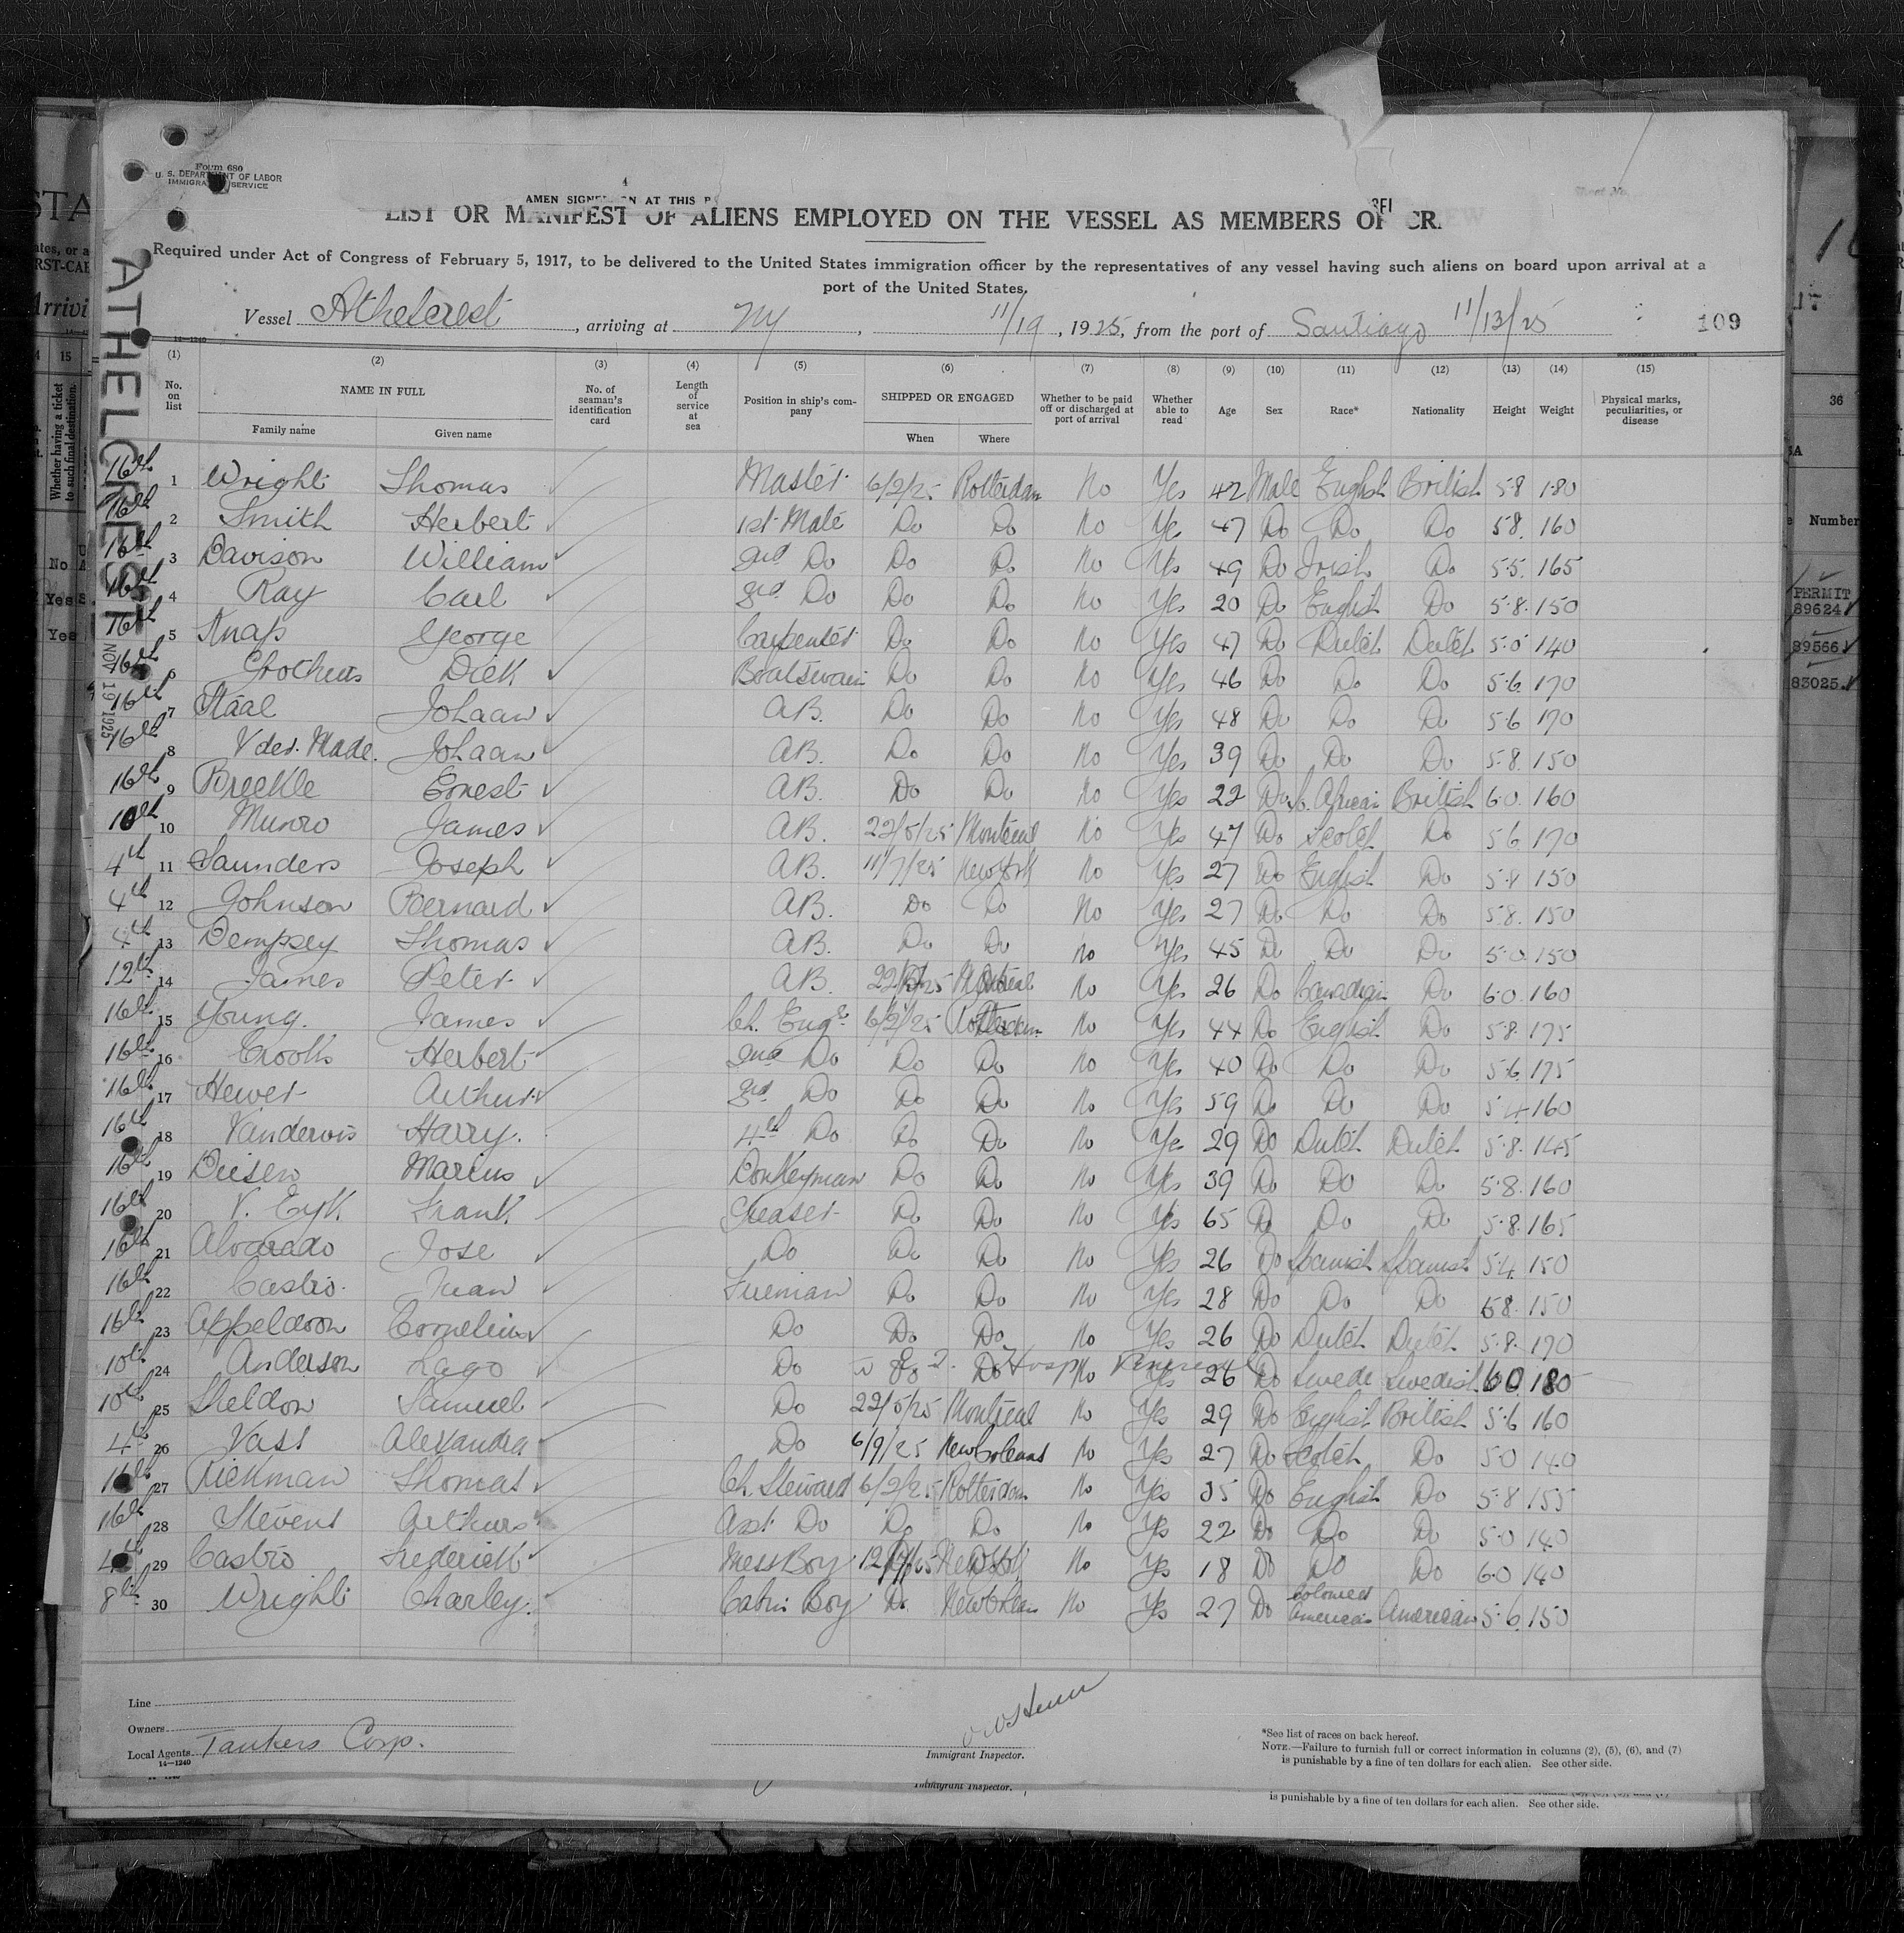 Form 680
U. S. DEPARTMENT OF LABOR
IMMIGRATION SERVICE
AMEN SIGNED ON AT THIS
LIST OR MANIFEST OF ALIENS EMPLOYED ON THE VESSEL AS MEMBERS OF CR
Required under Act of Congress of February 5, 1917, to be delivered to the United States immigration officer by the representatives of any vessel having such aliens on board upon arrival at a
port of the United States.
Vessel Athelcrest, arriving at NY, 11/19, 1925, from the port of Santiago 11/13/25
109
ATHELCREST
NOV 19 1925
14-1240
(1) (2) (3) (4) (5) (6) (7) (8) (9) (10) (11) (12) (13) (14) (15)
No. on list NAME IN FULL Family name Given name No. of seaman's identification card Length of service at sea Position in ship's company SHIPPED OR ENGAGED When Where Whether to be paid off or discharged at port of arrival Whether able to read Age Sex Race* Nationality Height Weight Physical marks, peculiarities, or disease
16th 1 Wright Thomas Master 6/2/25 Rotterdam No Yes 42 Male English British 5·8 180
16th 2 Smith Herbert 1st Mate Do Do No Yes 47 Do Do Do 5·8 160
16th 3 Davison William 2nd Do Do Do No Yes 49 Do Irish Do 5·5 165
16th 4 Ray Carl 3rd Do Do Do No Yes 20 Do English Do 5·8 150
16th 5 Knap George Carpenter Do Do No Yes 47 Do Dutch Dutch 5·0 140
16th 6 Dick Boatswain Do Do No Yes 46 Do Do Do 5·6 170
16th 7 Johaan AB. Do Do No Yes 48 Do Do Do 5·6 170
16th 8 V der. Made. Johaan AB. Do Do No Yes 39 Do Do Do 5·8 150
16th 9 Breekle Ernest AB. Do Do No Yes 22 Do S. African British 6·0 160
10th 10 Munro James AB. 22/5/25 Montreal No Yes 47 Do Scotch Do 5·6 170
4th 11 Saunders Joseph AB. 11/7/25 New York No Yes 27 Do English Do 5·8 150
4th 12 Johnson Bernard AB. Do Do No Yes 27 Do Do Do 5·8 150
4th 13 Dempsey Thomas AB. Do Do No Yes 45 Do Do Do 5·0 150
12th 14 James Peter AB. 22/5/25 Montreal No Yes 26 Do Canadian Do 6·0 160
16th 15 Young. James Ch. Engr 6/2/25 Rotterdam No Yes 44 Do English Do 5·8 175
16th 16 Crooks Herbert 2nd Do Do Do No Yes 40 Do Do Do 5·6 175
16th 17 Hewer Arthur 3rd Do Do Do No Yes 59 Do Do Do 5·4 160
16th 18 Vandervis Harry. 4th Do Do Do No Yes 29 Do Dutch Dutch 5·8 145
16th 19 Marius Donkeyman Do Do No Yes 39 Do Do Do 5·8 160
16th 20 V. Eyk Frank Greaser Do Do No Yes 65 Do Do Do 5·8 165
16th 21 Alvarado Jose Do Do Do No Yes 26 Do Spanish Spanish 5·4 150
16th 22 Castro. Juan Fireman Do Do No Yes 28 Do Do Do 5·8 150
16th 23 Appeldoorn Cornelius Do Do Do No Yes 26 Do Dutch Dutch 5·8 170
10th 24 Anderson Do Do Do Hosp No Yes 26 Do Swede Swedish 6·0 180
10th 25 Sheldon Samuel Do 22/5/25 Montreal No Yes 29 Do English British 5·6 160
4th 26 Vass Alexandra Do 6/9/25 New Orleans No Yes 27 Do Scotch Do 5·0 140
16th 27 Rickman Thomas Ch. Steward 6/2/25 Rotterdam No Yes 35 Do English Do 5·8 155
16th 28 Stevens Arthur Asst Do Do Do No Yes 22 Do Do Do 5·0 140
4th 29 Castro Frederick Mess Boy New York No Yes 18 Do Do Do 6·0 140
8th 30 Wright Charley. Cabin Boy Do New Orleans No Yes 27 Do Coloured American American 5·6 150
Line
Owners
Local Agents Tankers Corp.
14-1240
Immigrant Inspector.
*See list of races on back hereof.
NOTE.—Failure to furnish full or correct information in columns (2), (5), (6), and (7)
is punishable by a fine of ten dollars for each alien. See other side.
Immigrant Inspector.
is punishable by a fine of ten dollars for each alien. See other side.
36
Number
PERMIT
89624
89566
83025